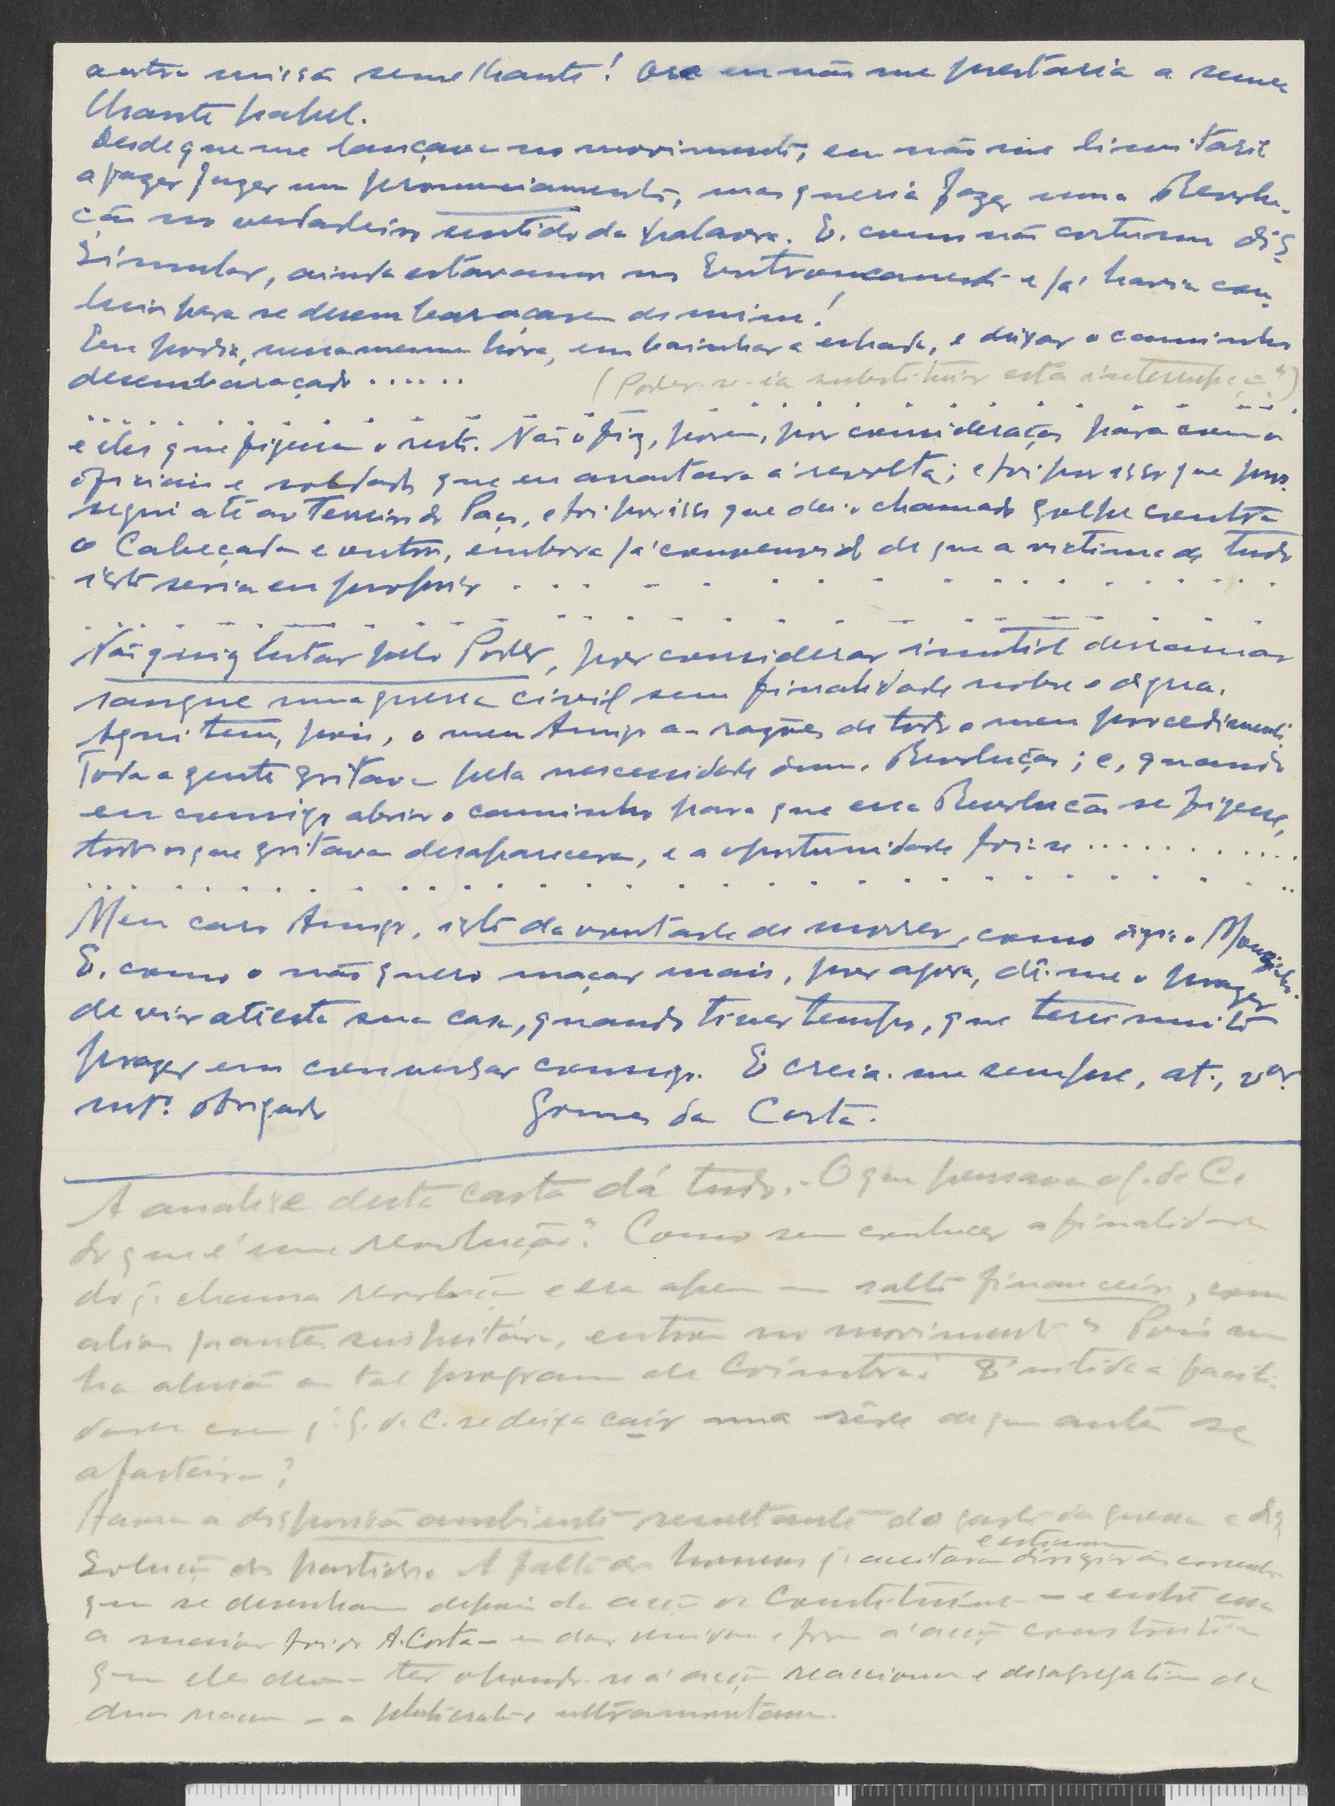 outra missão semelhante! Ora eu não me prestaria a seme
lhante papel.
Desde que me lançava no movimento, eu não me limitaria
a fazer fazer um pronunciamento, mas queria fazer uma Revolu-
ção no verdadeiro sentido da palavra. E, como não costumo dis-
simular, ainda estavamos no Entroncamento e já havia con-
luio para se desembaraçarem de mim!
Eu podia, nessa mesma hora, embainhar a espada, e deixar o caminho
desembaraçado ...... (Poder-se-ia substituir esta interrupção)
e eles que fizessem o resto. Não o fiz, porem, por consideração para com os
oficiais e soldados que eu arrastara á revolta; e foi por isso que pros-
segui até ao Terreiro do Paço, e foi por isso que dei o chamado golpe contra
o Cabeçadas e outros, embora já convencido de que a victima de tudo
isto seria eu proprio . . . . . . . . . . . . . . .
Não quiz lutar pelo Poder, por considerar inutil derramar
sangue numa guerra civil sem finalidade nobre e digna.
Aqui tem, pois, o meu Amigo as razões de todo o meu procedimento.
Toda a gente gritava pela necessidade duma Revolução; e, quando
eu consigo abrir o caminho para que essa Revolução se fizesse,
todos os que gritavam desapareceram, e a oportunidade foi-se ............
Meu caro Amigo, isto da vontade de morrer, como dizia o Mousinho.
E, como o não quero maçar mais, por agora, dê-me o prazer
de vir até esta sua casa, quando tiver tempo, que terei muito
prazer em conversar comsigo. E creia-me sempre, at., ven.or
mt.º obrigado Gomes da Costa.
A analise desta carta dá tudo. O que pensava o G. da C.
do que é uma revolução? Como sem conhecer a finalidade
do q. chama revolução e era apenas um salto financeiro, com
entrou no movimento? Pois não
ha alusão ao tal programa de Coimbra? E nitida a facili-
dade com q. G. da C. se deixa cair numa rêde de que antes se
afasteira?
Havia a dispersão ambiente resultante do gasto da guerra e dis-
solução dos partidos. A falta de homens q. aceitavam dirigir as correntes
que se desenham depois da acção de Constituinte — e entre esses
o maior foi o A. Costa — em dar unidade e força á acção construtiva
que eles deviam ter opondo-se á acção reaccionaria e desagregativa de